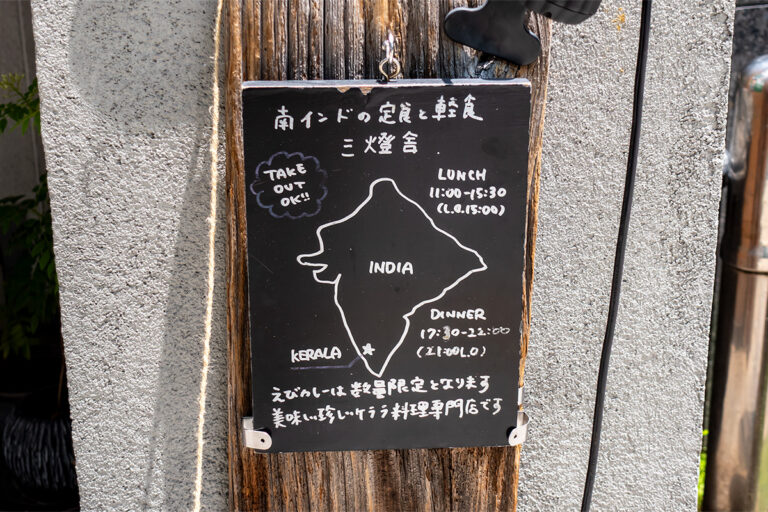 南インドの定食と軽食
三燈舎
TAKE
OUT
OK!!
LUNCH
11:00-15:30
(L.O.15:00)
INDIA
DINNER
17:30-22:00
(21:00L.O)
KERALA
えびカレーは数量限定となります
美味しい珍しいケララ料理専門店です